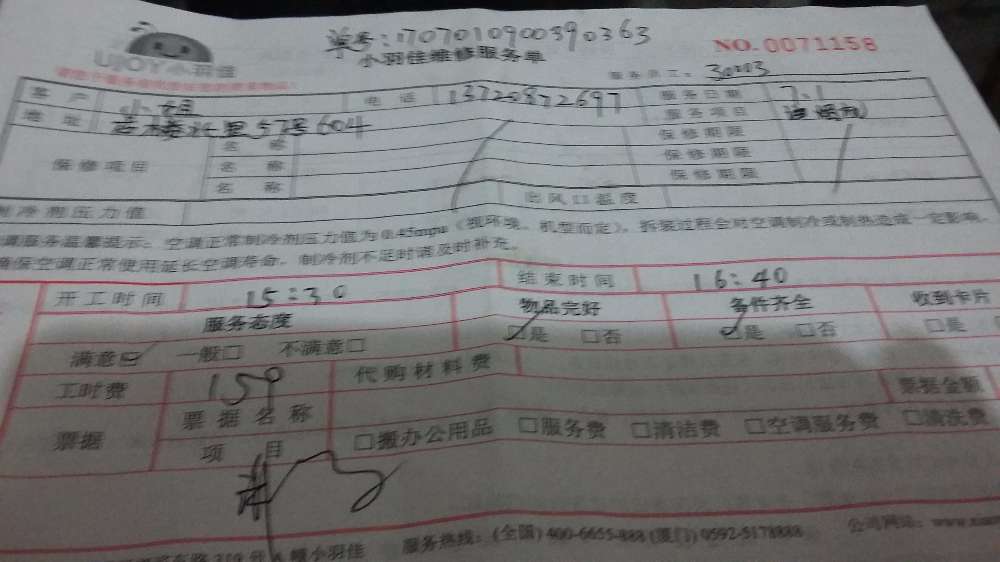 单号:170701090390363
UJOY小羽佳
小羽佳维修服务单
NO.0071158
服务员工:
客户 小姐 电话 13720872697 服务日期 7.1
地址 里57号604 服务项目
保修项目 名称 保修期限
名称 保修期限
名称 保修期限
制冷剂压力值 出风口温度
调服务温馨提示:空调正常制冷剂压力值为0.45mpa(视环境、机型而定),拆装过程会对空调制冷或制热造成一定影响,
确保空调正常使用延长空调寿命,制冷剂不足时请及时补充。
开工时间 15:30 结束时间 16:40
服务态度 物品完好 备件齐全 收到卡片
满意☑ 一般□ 不满意□ ☑是 □否 ☑是 □否 □是
工时费 150 代购材料费
票据 票据名称 票据金额
项目 □搬办公用品 □服务费 □清洁费 □空调服务费 □清洗费
小羽佳 服务热线:(全国)400-6655-888(厦门)0592-5178888 公司网站:www.xiao